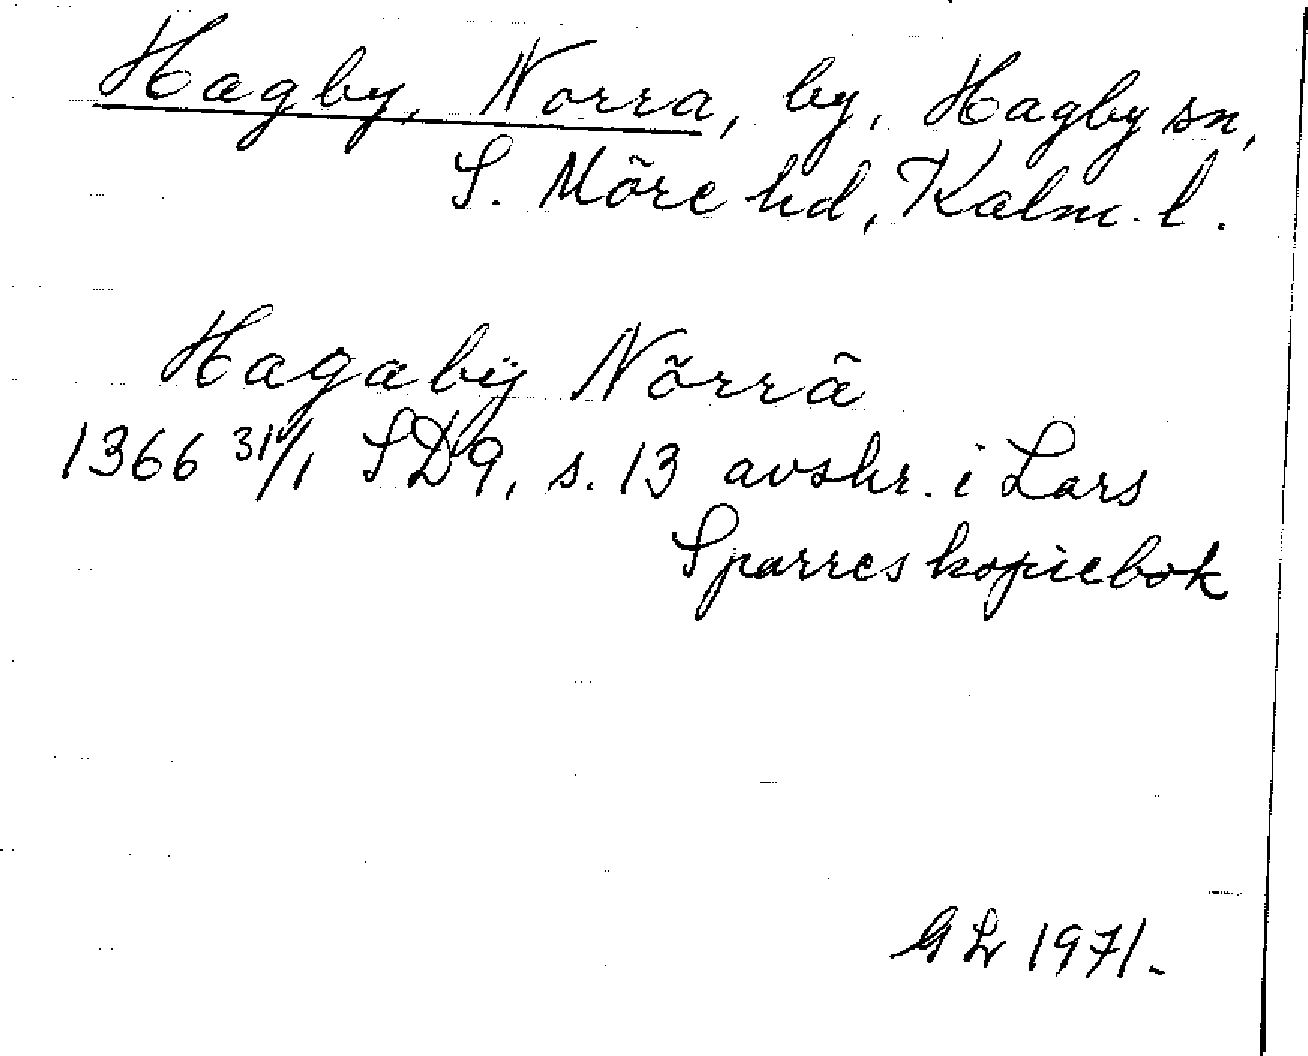 Hagby, Norra, by, Hagby sn,
S. Möre hd, Kalm. l.
Hagabÿ Nõrrã
1366 31/1 SD9, s. 13 avskr. i Lars
Sparres kopiebok
GL 1971.